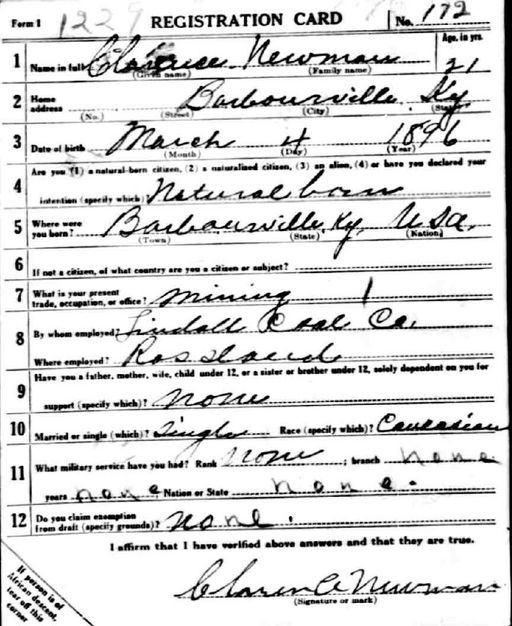 Form 1 1229 REGISTRATION CARD No. 172
1 Name in full Clarence Newman Age, in yrs. 21
(Given name) (Family name)
2 Home address Barbourville Ky
(No.) (Street) (City) (State)
3 Date of birth March 4 1896
(Month) (Day) (Year)
Are you (1) a natural-born citizen, (2) a naturalized citizen, (3) an alien, (4) or have you declared your
4 intention (specify which)? Natural born
5 Where were you born? Barbourville Ky, USA.
(Town) (State) (Nation)
6 If not a citizen, of what country are you a citizen or subject?
7 What is your present trade, occupation, or office? Mining 1
8 By whom employed? Coal Co.
Where employed?
9 Have you a father, mother, wife, child under 12, or a sister or brother under 12, solely dependent on you for
support (specify which)? None
10 Married or single (which)? Single Race (specify which)? Caucasian
11 What military service have you had? Rank None ; branch none
years none Nation or State none.
12 Do you claim exemption from draft (specify grounds)? None.
I affirm that I have verified above answers and that they are true.
If person is of
African descent,
tear off this
corner
Clarence Newman
(Signature or mark)